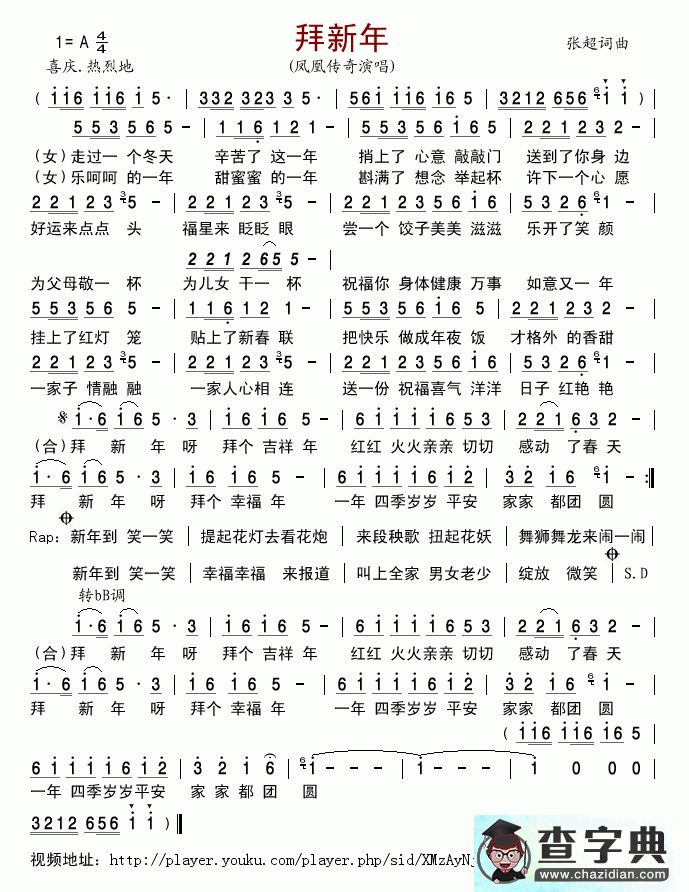 拜新年
1= A 4/4
张超词曲
喜庆.热烈地
(凤凰传奇演唱)
( i i6 i i6 i 5 · | 332 323 3 · | 56i i i6 i6 5 | 3212 656 i i ) |
5 5 3 5 6 5 – | 1 1 6 1 2 1 – | 5 5 3 5 6 5 i 6 5 | 2 2 1 2 3 2 – |
(女)走过一 个冬天 辛苦了 这一年 捎上了 心意 敲敲门 送到了你身 边
(女)乐呵呵 的一年 甜蜜蜜 的一年 斟满了 想念 举起杯 许下一个心 愿
2 2 1 2 3 5 – | 2 2 1 2 3 5 – | 2 2 1 2 3 5 6 i 6 | 5 5 3 2 6 1 – |
好运来点点 头 福星来 眨眨 眼 尝一个 饺子美美 滋滋 乐开了笑 颜
2 2 1 2 6 5 5 – |
为父母敬一 杯 为儿女 干一 杯 祝福你 身体健康 万事 如意又一 年
5 5 3 5 6 5 – | 1 1 6 1 2 1 – | 5 5 3 5 6 5 i 6 5 | 2 2 1 2 3 2 – |
挂上了红灯 笼 贴上了新春 联 把快乐 做成年夜 饭 才格外 的香甜
2 2 1 2 3 5 – | 2 2 1 2 3 5 – | 2 2 1 2 3 5 6 i 6 | 5 5 3 2 6 i – |
一家子 情融 融 一家人心相 连 送一份 祝福喜气 洋洋 日子 红艳 艳
i · 6 i 6 5 · 3 | i 6 i 6 5 – | 6 i i i i 6 5 3 | 2 2 1 6 3 2 – |
(合)拜 新 年 呀 拜个 吉祥 年 红红 火火亲亲 切切 感动 了春 天
i · 6 i 6 5 · 3 | i 6 i 6 5 – | 6 i i i i 6 i 2 | 3 2 i 6 i – :||
拜 新 年 呀 拜个 幸福 年 一年 四季岁岁 平安 家家 都团 圆
Rap: 新年到 笑一笑 | 提起花灯去看花炮 | 来段秧歌 扭起花妖 | 舞狮舞龙来闹一闹 |
新年到 笑一笑 | 幸福幸福 来报道 | 叫上全家 男女老少 | 绽放 微笑 | S.D
转bB调
i · 6 i 6 5 · 3 | i 6 i 6 5 – | 6 i i i i 6 5 3 | 2 2 1 6 3 2 – |
(合)拜 新 年 呀 拜个 吉祥 年 红红 火火亲亲 切切 感动 了春 天
i · 6 i 6 5 · 3 | i 6 i 6 5 – | 6 i i i i 6 i 2 | 3 2 i 6 i – |
拜 新 年 呀 拜个 幸福 年 一年 四季岁岁 平安 家家 都团 圆
( i i6 i i6 i6 5
6 i i i i 6 i 2 | 3 2 i 6 | i – – – | i – – – | 1 0 0 0
一年 四季岁岁平安 家 家 都 团 圆
3212 656 i i ) ||
视频地址: http://player.youku.com/player.php/sid/XMzAyNj
查字典
www.chazidian.com